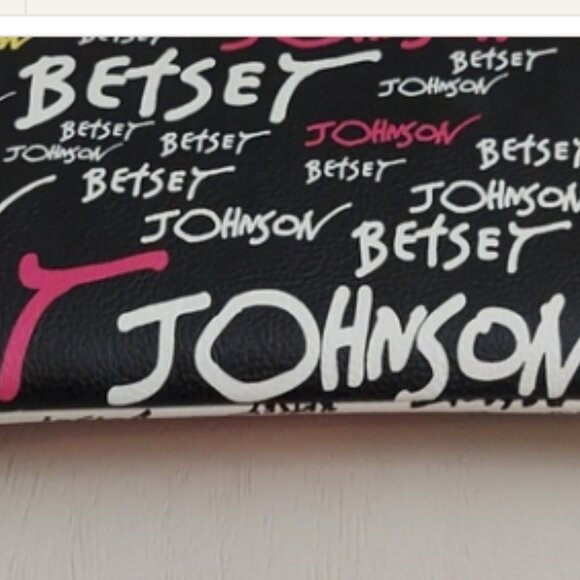 BETSEY
JOHNSON
BETSEY
BETSEY
JOHNSON
BETSEY
JOHNSON
BETSEY
JOHNSON
BETSEY
BETSEY
BETSEY
BETSEY
JOHNSON
JOHNSON
BETSEY
JOHNSON